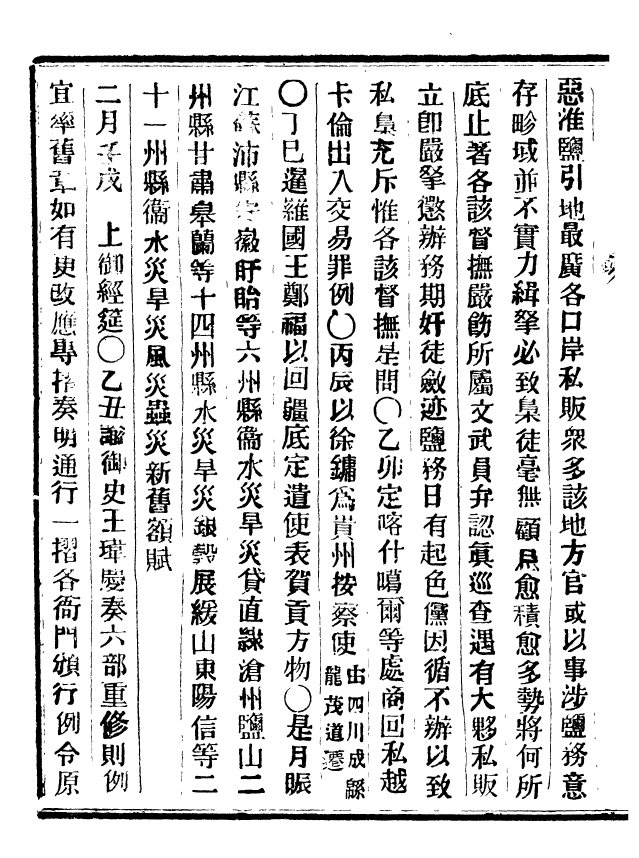 惡淮鹽引地最廣各口岸私販衆多該地方官或以事涉鹽務意
存畛域並不實力緝拏必致梟徒毫無顧忌愈積愈多勢將何所
底止著各該督撫嚴飭所屬文武員弁認眞巡查遇有大夥私販
立卽嚴拏懲辦務期奸徒斂迹鹽務日有起色儻因循不辦以致
私梟充斥惟各該督撫是問〇乙卯定喀什噶爾等處商回私越
卡倫出入交易罪例〇丙辰以徐鏞爲貴州按察使由四川成緜
龍茂道遷
〇丁巳暹羅國王鄭福以回疆底定遣使表賀貢方物〇是月賑
江蘇沛縣安徽盱眙等六州縣衞水災旱災貸直隸滄州鹽山二
州縣甘肅皋蘭等十四州縣水災旱災銀穀展緩山東陽信等二
十一州縣衞水災旱災風災蟲災新舊額賦
二月壬戌 上御經筵〇乙丑諭御史王瑋慶奏六部重修則例
宜率舊章如有更改應專摺奏明通行一摺各衙門頒行例令原